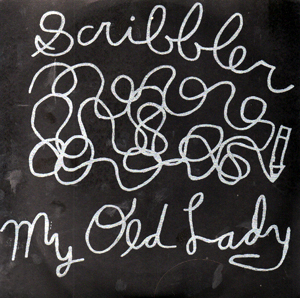 Scribbler
My Old Lady